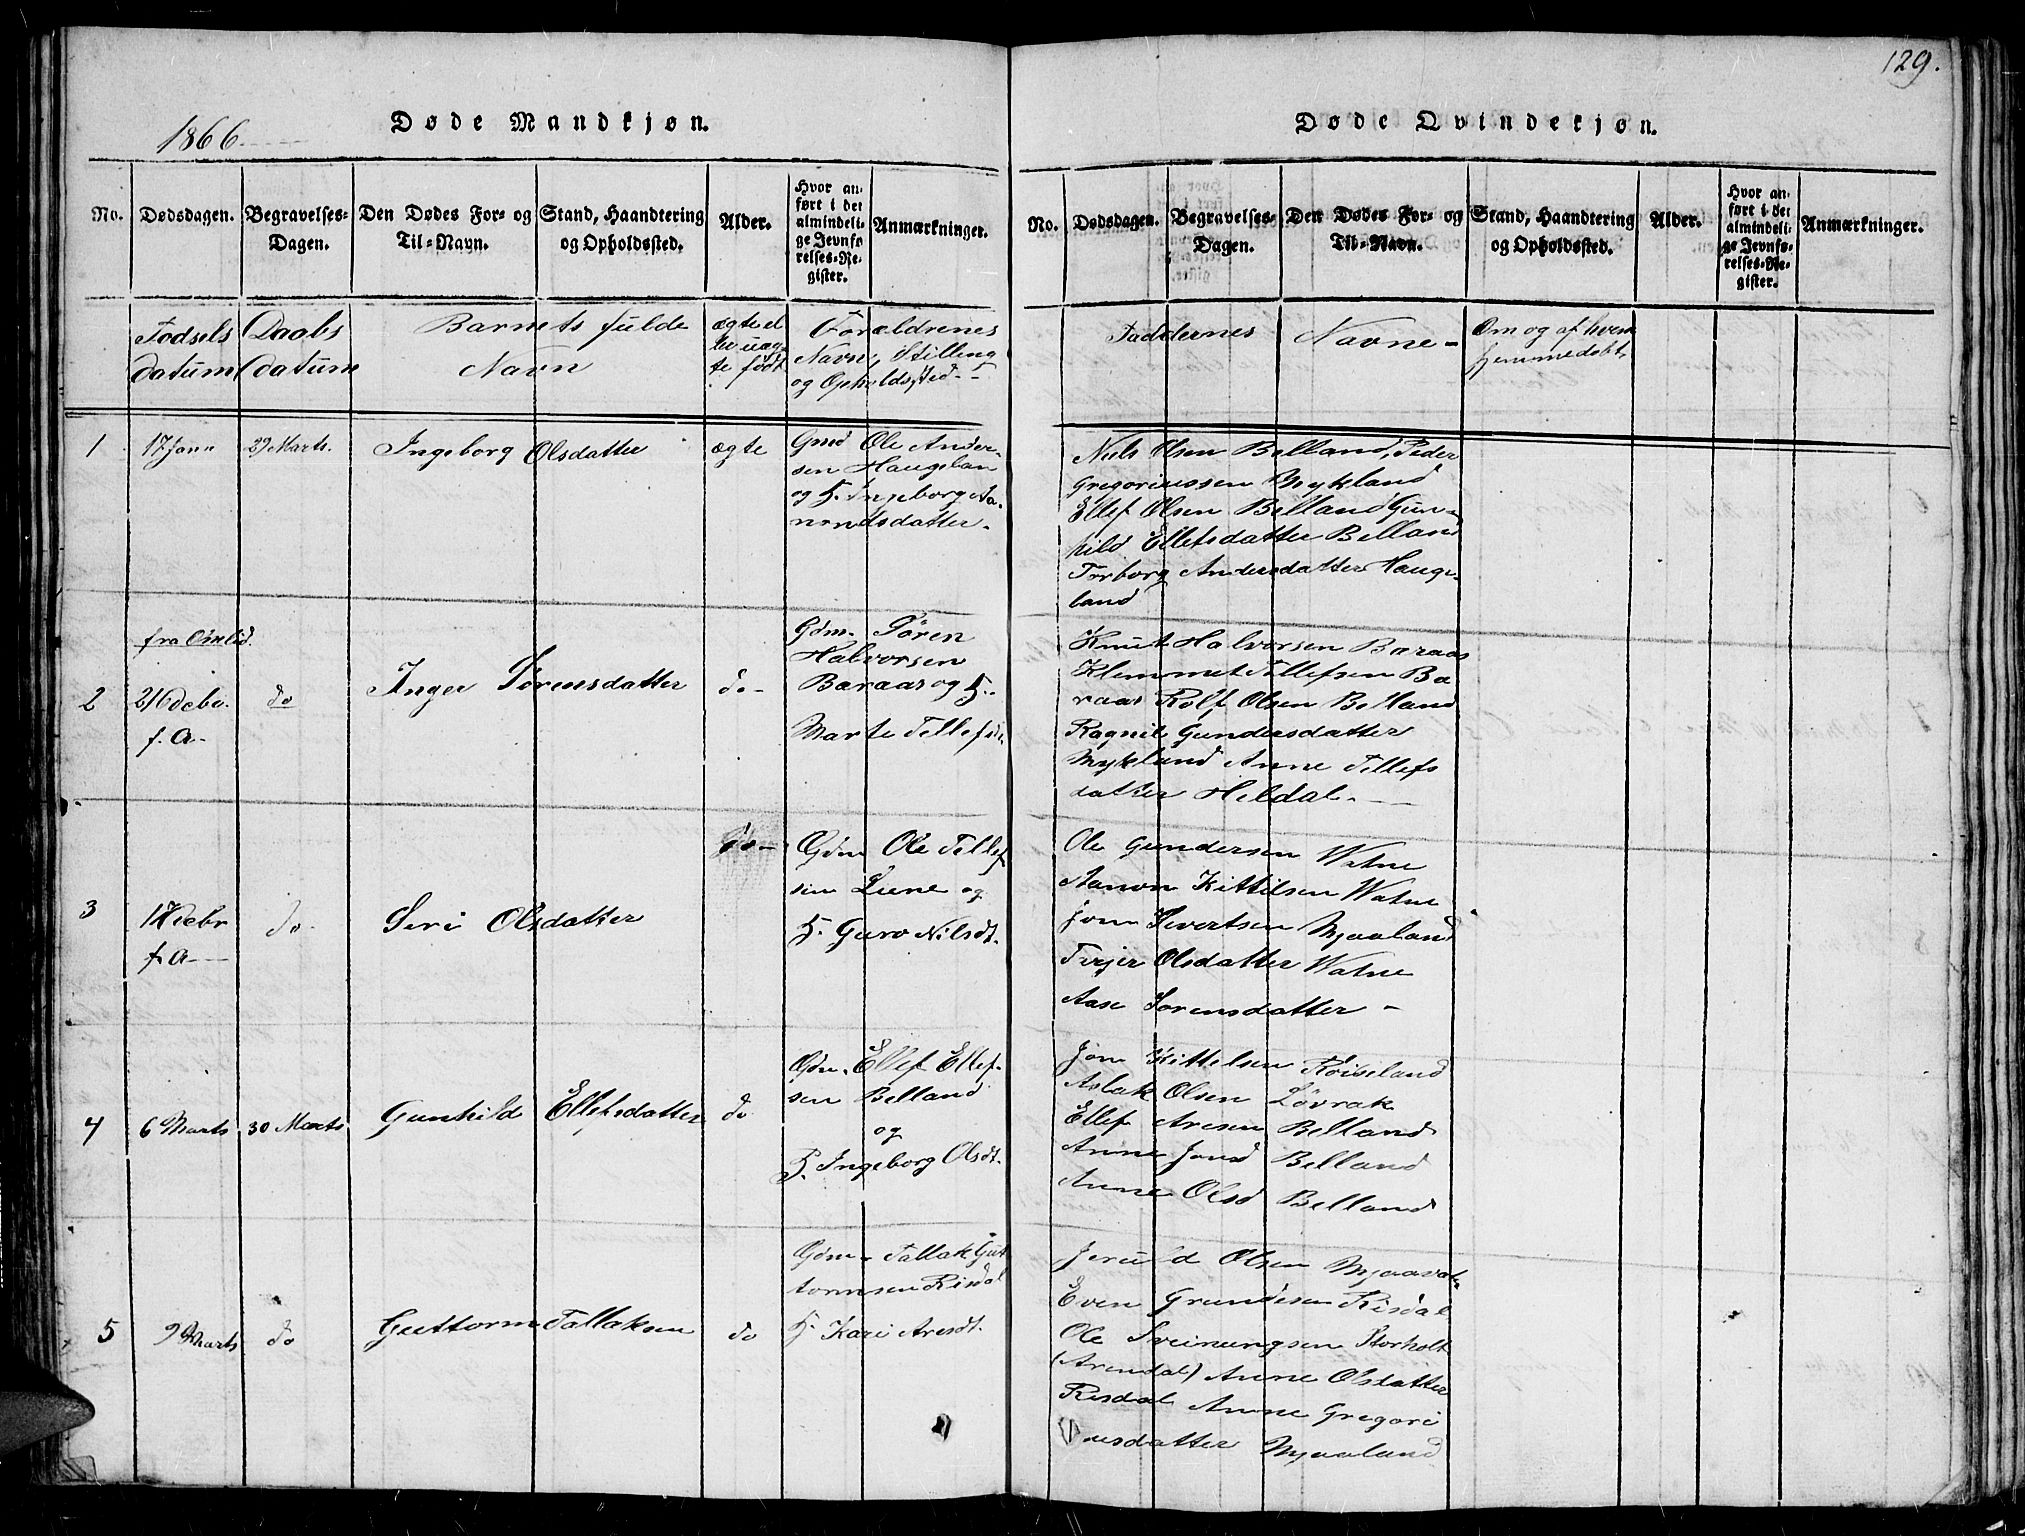 129.
1866
Døde Mandkjøn.
No.
Dødsdagen.
Begravelses-
Dagen.
Den Dødes For- og
Til-Navn.
Stand, Haandtering
og Opholdssted.
Alder.
Hvor an-
ført i det
almindeli-
ge Jevnfø
relses-Re-
gister.
Anmærkninger.
Fødsels
datum
Daabs
datum
Barnets fulde
Navn
ægte el
ler uæg-
te født
Forældrenes
Navn, Stilling
og Opholdssted
1
17 Jan
29 Marts.
Ingeborg Olsdatter
ægte
Gmd Ole Ander-
sen Haugelan
og H. Ingeborg Aa-
nondsdatter.
fra Omlid
2
f. A.
do
Inger Sørensdatter
do
Gdm. Søren
Halvorsen
Baraas og H.
Marte Tellefsdt.
3
f. A
do
Seri Olsdatter
do
Gdm Ole Tellef
sen Lune og
H. Guro Nilsdt.
4
6 Marts
30 Marts
Gunhild Ellefsdatter
do
Gdm. Ellef Ellef-
sen Belland
og
H. Ingeborg Olsdt.
5
9 Marts
do
Guttorm Tallaksen
do
Gdm. Tallak Gut
tormsen Risdal
H. Kari Aresdt.
Døde Qvindekjøn.
No.
Dødsdagen.
Begravelses-
Dagen.
Den Dødes For- og
Til-Navn.
Stand, Haandtering
og Opholdssted.
Alder.
Hvor an-
ført i det
almindeli-
ge Jevnfø-
relses-Re-
gister.
Anmærkninger.
Faddernes Navne
Om og af hvem
hjemmedøbt
Niels Olsen Belland, Peder
Gregoriussen Mykland
Ellef Olsen Belland Gun-
hild Ellefsdatter Belland
Torborg Andersdatter Hauge-
land
Knut Halvorsen Baraas
Klemmet Tellefsen Ba
raas Rolf Olsen Belland
Ragnil Gundersdatter
Mykland Anne Tellefs
datter Heldal.
Ole Gundersen Watne
Aanon Kittilsen Watne
Jon Sivertsen Mjaaland
Terjer Olsdatter Watne
Aase Sorensdatter
Jon Kittelsen Røiseland
Aslak Olsen Løvrak
Ellef Aresen Belland
Anne Jonsd Belland
Anne Olsd Belland
Olsen Mjaavatn
Even Gundesen Risdal
Ole Sveinungsen Storholt
(Arendal) Anne Olsdatter
Risdal Anne Gregori
usdatter Mjaaland